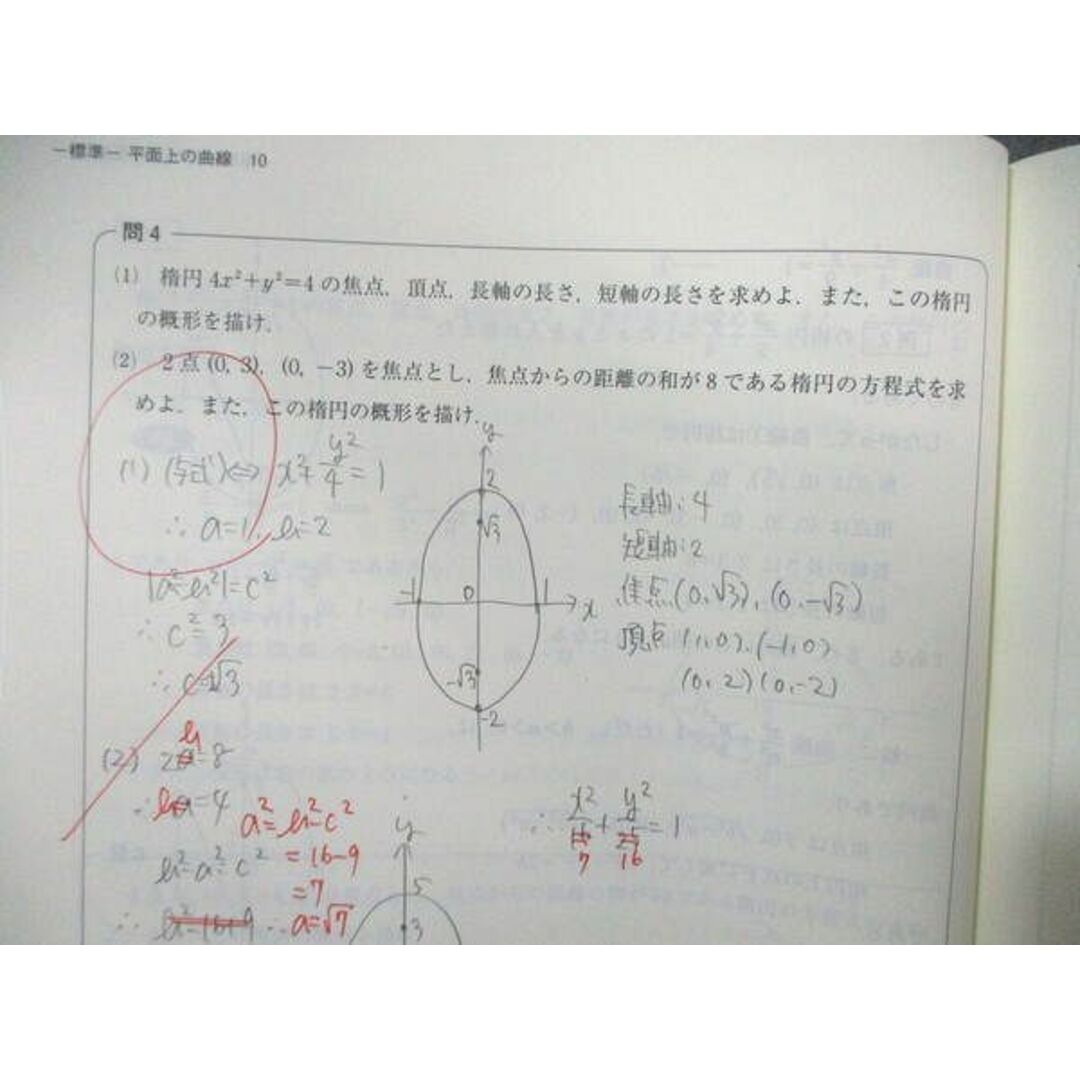 −標準− 平面上の曲線 10
問4
(1) 楕円 4x²+y²=4 の焦点,頂点,長軸の長さ,短軸の長さを求めよ.また,この楕円
の概形を描け.
(2) 2点(0, 3),(0, −3)を焦点とし,焦点からの距離の和が8である楕円の方程式を求
めよ.また,この楕円の概形を描け.
(1) (与式)⇔ x²+y²/4=1
∴ a=1, b=2
|a²-b²|=c²
∴ c²=3
∴ c=√3
y
2
√3
-1
0
1
x
-√3
-2
長軸:4
短軸:2
焦点(0,√3),(0,-√3)
頂点(1,0),(-1,0)
(0,2)(0,-2)
(2) 2b=8
∴ b=4
a²=b²-c²
=16-9
=7
∴ a=√7
b²-a²=c²
∴ b²=16+9
y
5
3
∴ x²/16+y²/25=1
7
16